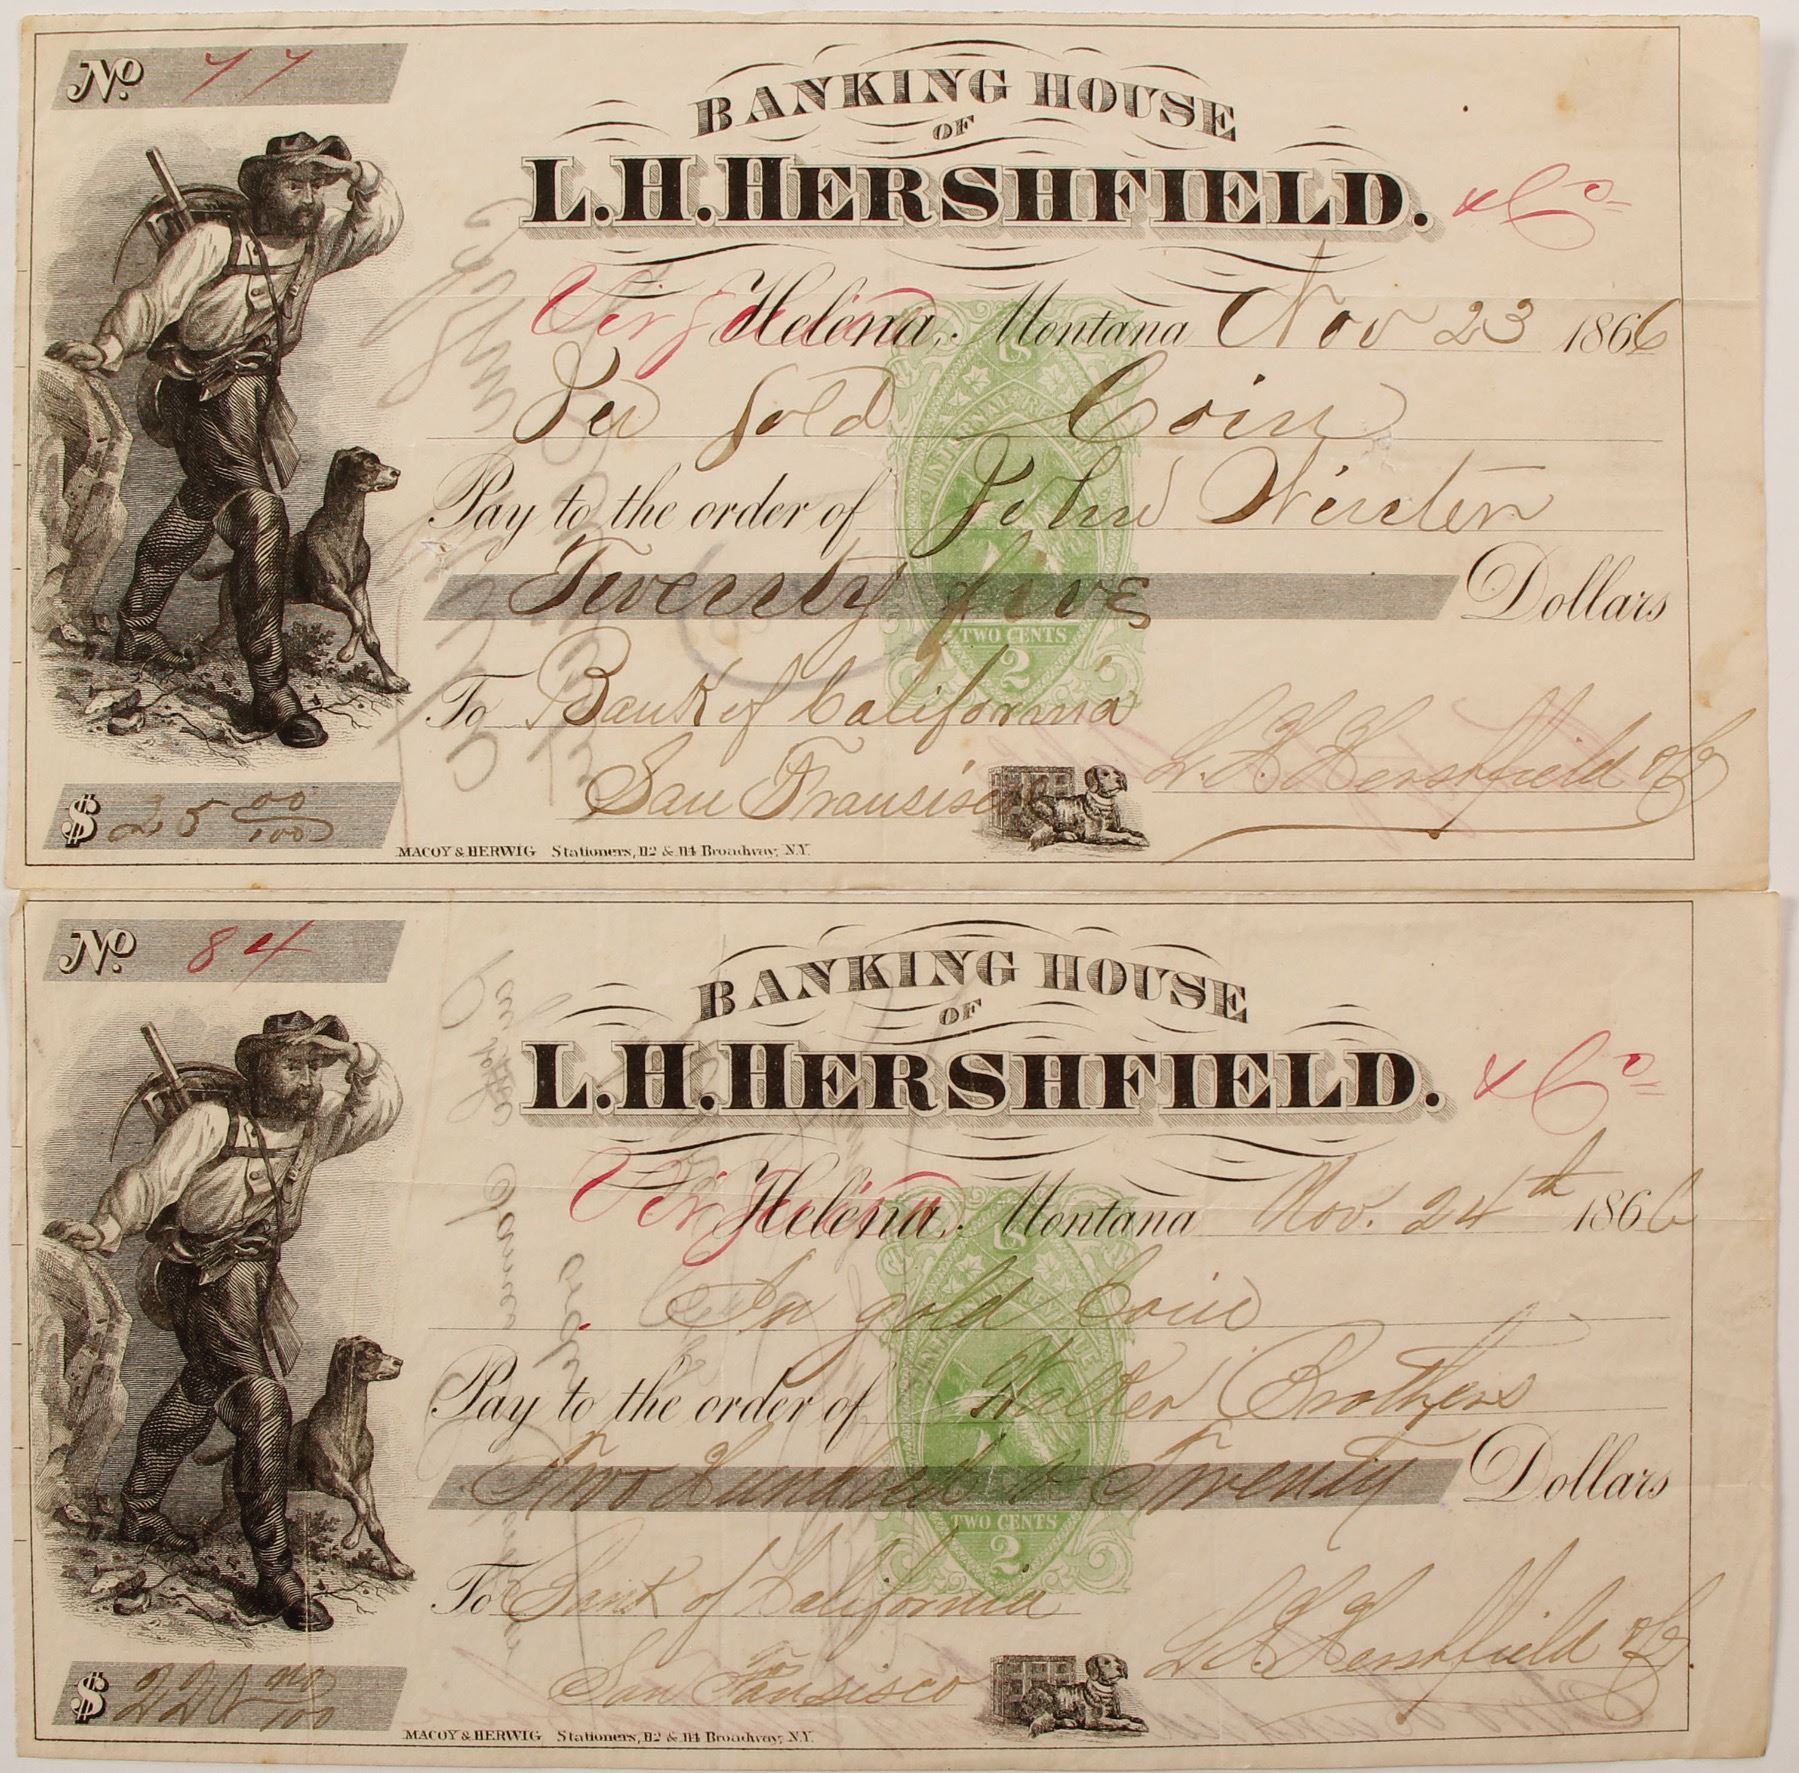 No. 77
BANKING HOUSE
OF
L.H. HERSHFIELD. & Co
Virg Helena, Montana Nov 23 1866
In Gold Coin
Pay to the order of John Winter
Twenty five Dollars
TWO CENTS
2
To Bank of California
San Fransisco
L. H. Hershfield & Co
$ 25 00/100
MACOY & HERWIG Stationers, 112 & 114 Broadway, N.Y.
No. 84
BANKING HOUSE
OF
L.H. HERSHFIELD. & Co
Virg Helena, Montana Nov. 24th 1866
In gold Coin
Pay to the order of Walker Brothers
Two Hundred & Twenty Dollars
TWO CENTS
2
To Bank of California
San Fransisco
L. H. Hershfield & Co.
$ 220 00/100
MACOY & HERWIG Stationers, 112 & 114 Broadway, N.Y.